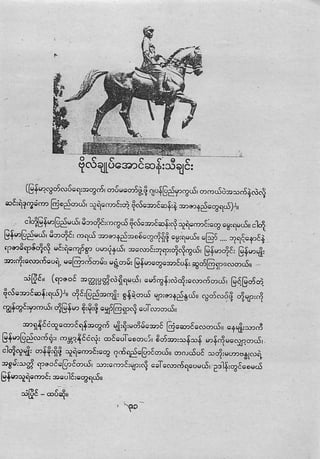 ဗိုလ်ချုပ်အောင်ဆန်းသီချင်း
(မြန်မာ့လွတ်လပ်ရေးအတွက်၊ တပ်မတော်ဖွဲ့ဖို့ ဂျပန်ပြည်မှာကွယ်၊ တကယ်ပဲအသက်နဲ့လဲလို့
ဆင်းရဲဒုက္ခမ်ကာ ကြံစည်တယ်၊ သူရဲကောင်းတဲ့ ဗိုလ်အောင်ဆန်းနဲ့ အာဇာနည်တွေရယ်)။
ငါတို့မြန်မာပြည်မယ်၊ မိဘတိုင်းကကွယ် ဗိုလ်အောင်ဆန်းလို သူရဲကောင်းတွေ မွေးရမယ်၊ ငါတို့
မြန်မာပြည်မယ်၊ မိဘတိုင်း ကရယ် အာဇာနည်အစစ်တွေကိုရှိဖို့ မွေးရမယ်၊ ဩော် .... ဘုရင့်နောင်နဲ့
ရာဇာဓိရာဇ်တို့လို မင်းရဲကျော်စွာ ပမာပုံနယ်၊ အလောင်းဘုရားတို့လိုကွယ်၊ မြန်မာတိုင်း မြန်မာမျိုး
အားကိုးလောက်ပေရဲ့ မကြောက်တမ်း မရွံ့တမ်း မြန်မာတွေအောင်ပန်း ဆွတ်ကြရှာလေတယ်။
သံပြိုင်။ (ရာဇဝင် အတ္ထုပ္ပတ္တိလဲရှိရမယ်၊ မော်ကွန်းလဲထိုးလောက်တယ်၊ မြင့်မြတ်တဲ့
ဗိုလ်အောင်ဆန်းရယ်)။ တိုင်းပြည်အကျိုး စွန့်ရဲတယ် များအာဇာနည်နယ်။ လွတ်လပ်ဖို့ တို့များကို
ကျွန်တွင်းမှာကယ်၊ တို့မြန်မာ စိုးမိုးဖို့ မျှော်ကြရှာလို့ ပေါ်လာတယ်။
အာရှနိုင်ငံတွထောင်ရန်အတွက် မျိုးရိုးမတိမ်အောင် ကြံဆောင်လေတယ်။ နေမျိုးဘာကီ
မြန်မာပြည်လက်ရုံး၊ ကမ္ဘာနိုင်ငံလုံး ထင်ပေါ်စေတယ်၊ စိတ်အားသန်သန် မာန်ကိုမလျှော့တယ်၊
ငါတို့လူမျိုး တန်ခိုးရှိဖို့ သူရဲကောင်းတွေ ဂုဏ်ရည်ပြောင်တယ်။ တပယင် သတိုးမဟာဗန္ဓုလရဲ့
အစွမ်းသတ္တိ ရာဇဝင်ပြောင်တယ်၊ သားကောင်းများလို့ ခေါ်လောက်ရပေမယ်၊ ဥဒါန်းတွင်စေမယ်
မြန်မာသူရဲကောင်း အပေါင်းတွေရယ်။
သံပြိုင် – ထပ်ဆို။